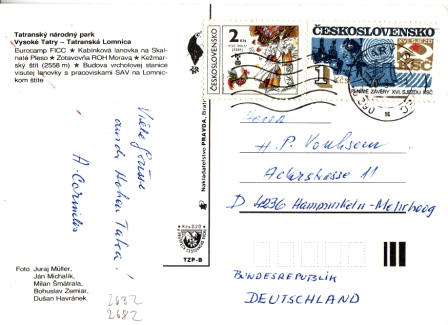 Tatranský národný park
Vysoké Tatry – Tatranská Lomnica
Eurocamp FICC ★ Kabínková lanovka na Skal-
naté Pleso ★ Zotavovňa ROH Morava ★ Kežmar-
ský štít (2558 m) ★ Budova vrcholovej stanice
visutej lanovky s pracoviskami SAV na Lomnic-
kom štíte
Viele Grüße
aus der Hohen Tatra!
A.
Foto Juraj Müller,
Ján Michalík,
Milan Šmátrala,
Bohuslav Zemiar,
Dušan Havránek
2632
2682
Nakladateľstvo PRAVDA,
Kčs 0,20
TZP-B
ČESKOSLOVENSKO
2 Kčs
ČESKOSLOVENSKO
1 Kčs
KSČ
PLNÍME ZÁVĚRY XVI. SJEZDU KSČ
Herrn
H. P.
Ackerstrasse 11
D 4236 Hamminkeln-Mehrhoog
BUNDESREPUBLIK
DEUTSCHLAND